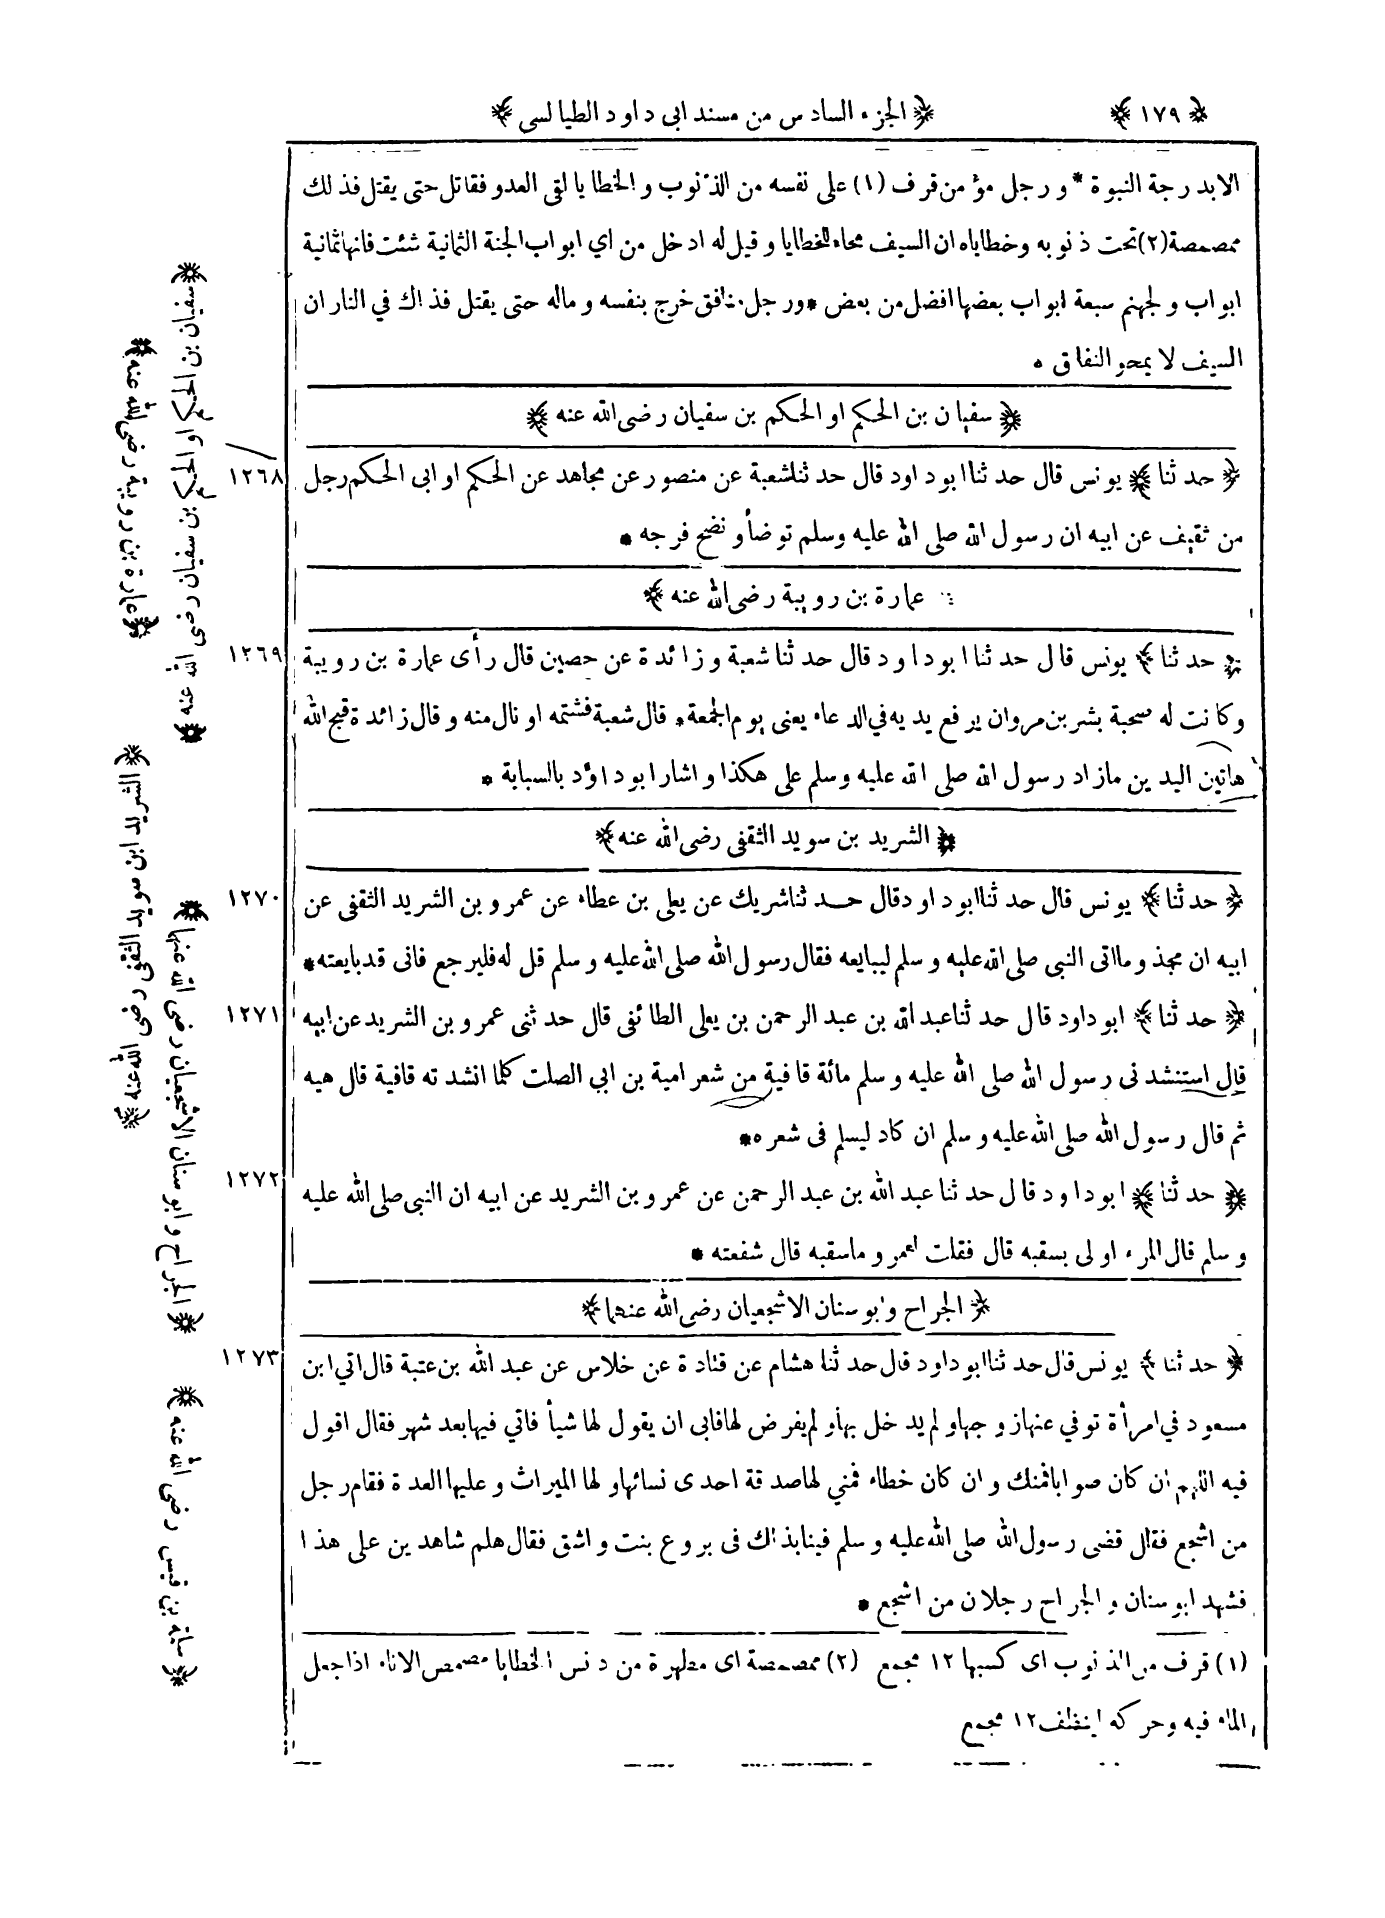 ﴿ ١٧٩ ﴾
﴿ الجزء السادس من مسند ابى داود الطيالسى ﴾
الابدرجة النبوة * ورجل مؤمن قرف (١) على نفسه من الذنوب والخطايا لقى العدو فقاتل حتى يقتل فذلك
ممصمصة (٢) تحت ذنوبه وخطاياه ان السيف محاء للخطايا وقيل له ادخل من اي ابواب الجنة الثمانية شئت فانها ثمانية
ابواب ولجهنم سبعة ابواب بعضها افضل من بعض * ورجل منافق خرج بنفسه وماله حتى يقتل فذاك في النار ان
السيف لا يمحو النفاق *
﴿ سفيان بن الحكم او الحكم بن سفيان رضى الله عنه ﴾
١٢٦٨ ﴿ حدثنا ﴾ يونس قال حدثنا ابوداود قال حدثنا شعبة عن منصور عن مجاهد عن الحكم او ابى الحكم رجل
من ثقيف عن ابيه ان رسول الله صلى الله عليه وسلم توضأ ونضح فرجه *
عمارة بن رويبة رضى الله عنه ﴾
١٢٦٩ ﴿ حدثنا ﴾ يونس قال حدثنا ابوداود قال حدثنا شعبة وزائدة عن حصين قال رأى عمارة بن رويبة
وكانت له صحبة بشر بن مروان يرفع يديه في الدعاء يعنى يوم الجمعة * قال شعبة فشتمه او نال منه وقال زائدة قبح الله
هاتين اليدين مازاد رسول الله صلى الله عليه وسلم على هكذا واشار ابوداؤد بالسبابة *
﴿ الشريد بن سويد الثقفى رضى الله عنه ﴾
١٢٧٠ ﴿ حدثنا ﴾ يونس قال حدثنا ابوداود قال حدثنا شريك عن يعلى بن عطاء عن عمرو بن الشريد الثقفى عن
ابيه ان مجذوما اتى النبى صلى الله عليه وسلم ليبايعه فقال رسول الله صلى الله عليه وسلم قل له فليرجع فانى قد بايعته *
١٢٧١ ﴿ حدثنا ﴾ ابوداود قال حدثنا عبد الله بن عبد الرحمن بن يعلى الطائفى قال حدثنى عمرو بن الشريد عن ابيه
قال استنشدنى رسول الله صلى الله عليه وسلم مائة قافية من شعر امية بن ابي الصلت كلما انشدته قافية قال هيه
ثم قال رسول الله صلى الله عليه وسلم ان كاد ليسلم فى شعره *
١٢٧٢ ﴿ حدثنا ﴾ ابوداود قال حدثنا عبد الله بن عبد الرحمن عن عمرو بن الشريد عن ابيه ان النبى صلى الله عليه
وسلم قال المرء اولى بسقبه قال فقلت لعمرو ماسقبه قال شفعته *
﴿ الجراح وابوسنان الاشجعيان رضى الله عنهما ﴾
١٢٧٣ ﴿ حدثنا ﴾ يونس قال حدثنا ابوداود قال حدثنا هشام عن قتادة عن خلاس عن عبد الله بن عتبة قال اتي ابن
مسعود في امرأة توفي عنها زوجها ولم يدخل بها ولم يفرض لها فابى ان يقول لها شيأ فاتي فيها بعد شهر فقال اقول
فيه اللهم ان كان صوابا فمنك وان كان خطاء فمني لها صدقة احدى نسائها ولها الميراث وعليها العدة فقام رجل
من اشجع فقال قضى رسول الله صلى الله عليه وسلم فينا بذلك فى بروع بنت واشق فقال هلم شاهدين على هذا
فشهد ابوسنان والجراح رجلان من اشجع *
(١) قرف من الذنوب اى كسبها ١٢ مجمع (٢) ممصمصة اى مطهرة من دنس الخطايا مصمص الاناء اذا جعل
الماء فيه وحركه لينظف ١٢ مجمع
﴿ سفيان بن الحكم او الحكم بن سفيان رضى الله عنه ﴾
﴿ عمارة بن رويبة رضى الله عنه ﴾
﴿ الشريد ابن سويد الثقفى رضى الله عنه ﴾
﴿ الجراح وابوسنان الاشجعيان رضى الله عنهما ﴾
﴿ سلمة بن قيس رضى الله عنه ﴾